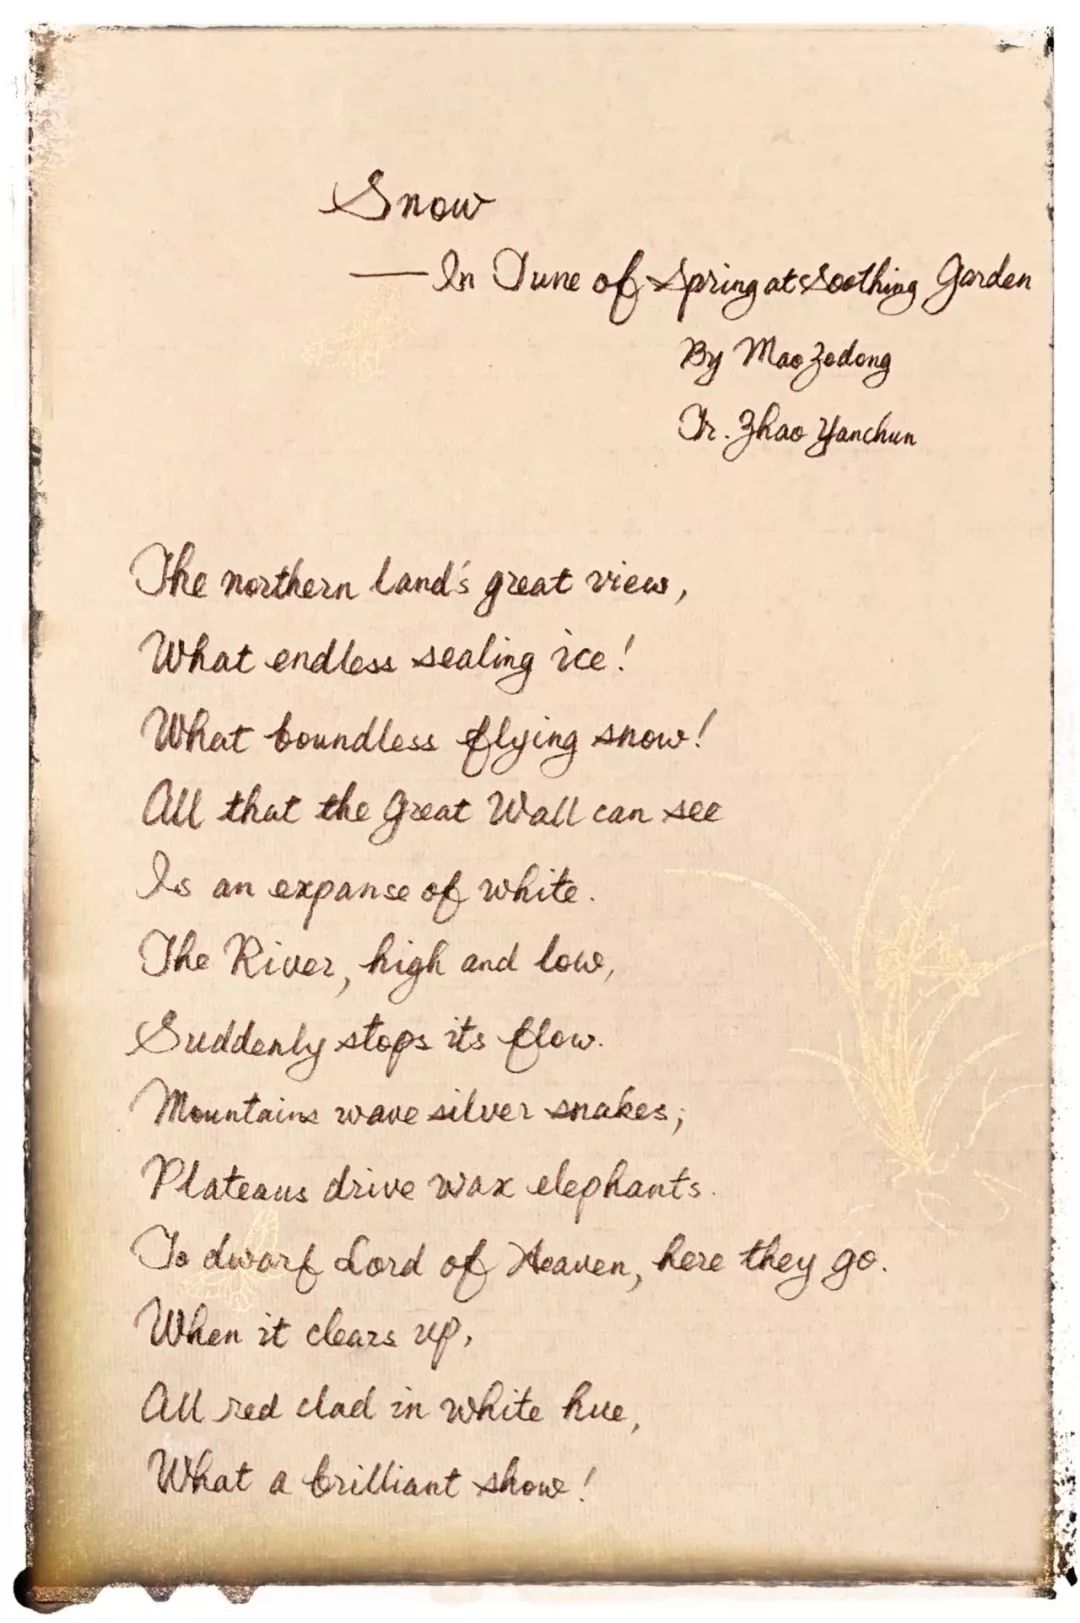 Snow
—In Tune of Spring at Soothing Garden
By Mao Zedong
Tr. Zhao Yanchun
The northern land's great view,
What endless sealing ice!
What boundless flying snow!
All that the Great Wall can see
Is an expanse of white.
The River, high and low,
Suddenly stops its flow.
Mountains wave silver snakes;
Plateaus drive wax elephants.
To dwarf Lord of Heaven, here they go.
When it clears up,
All red clad in white hue,
What a brilliant show!